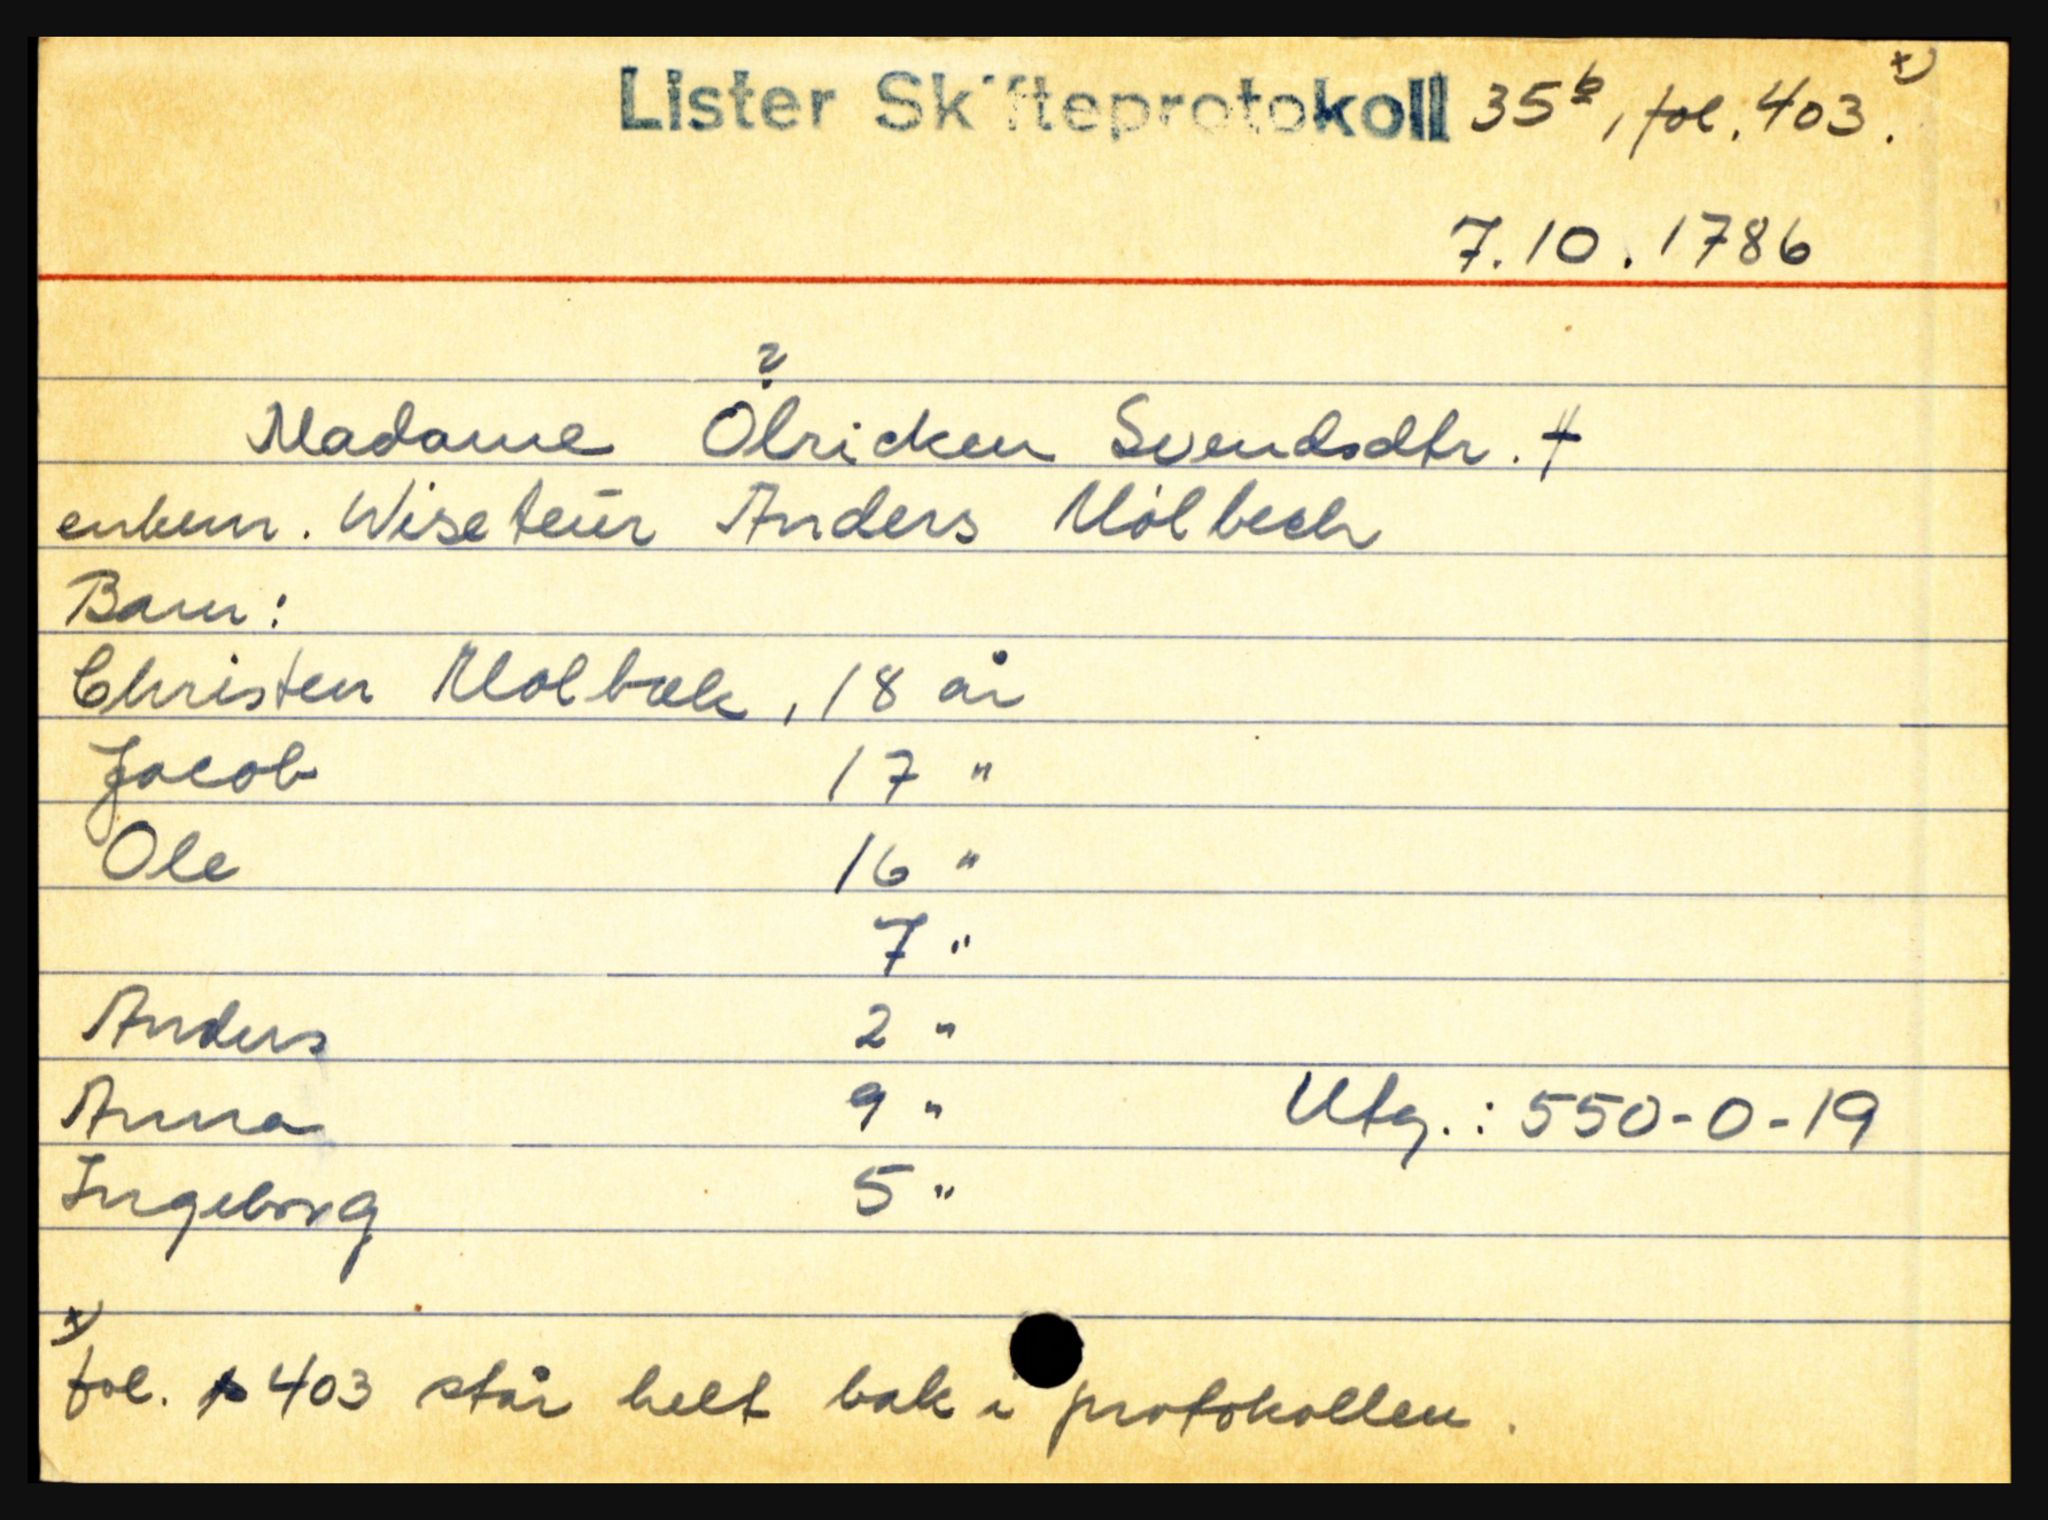 Lister Skifteprotokoll 35b, fol. 403. x)
7.10.1786
?
Madame Ölricken Svendsdtr. +
enkem. Wiseteür Anders Mölbech
Barn:
Christen Molbæk, 18 år
Jacob 17 "
Ole 16 "
7 "
Anders 2 "
Anna 9 " Utg.: 550-0-19
Ingeborg 5 "
x)
fol. 403 står helt bak i protokollen.